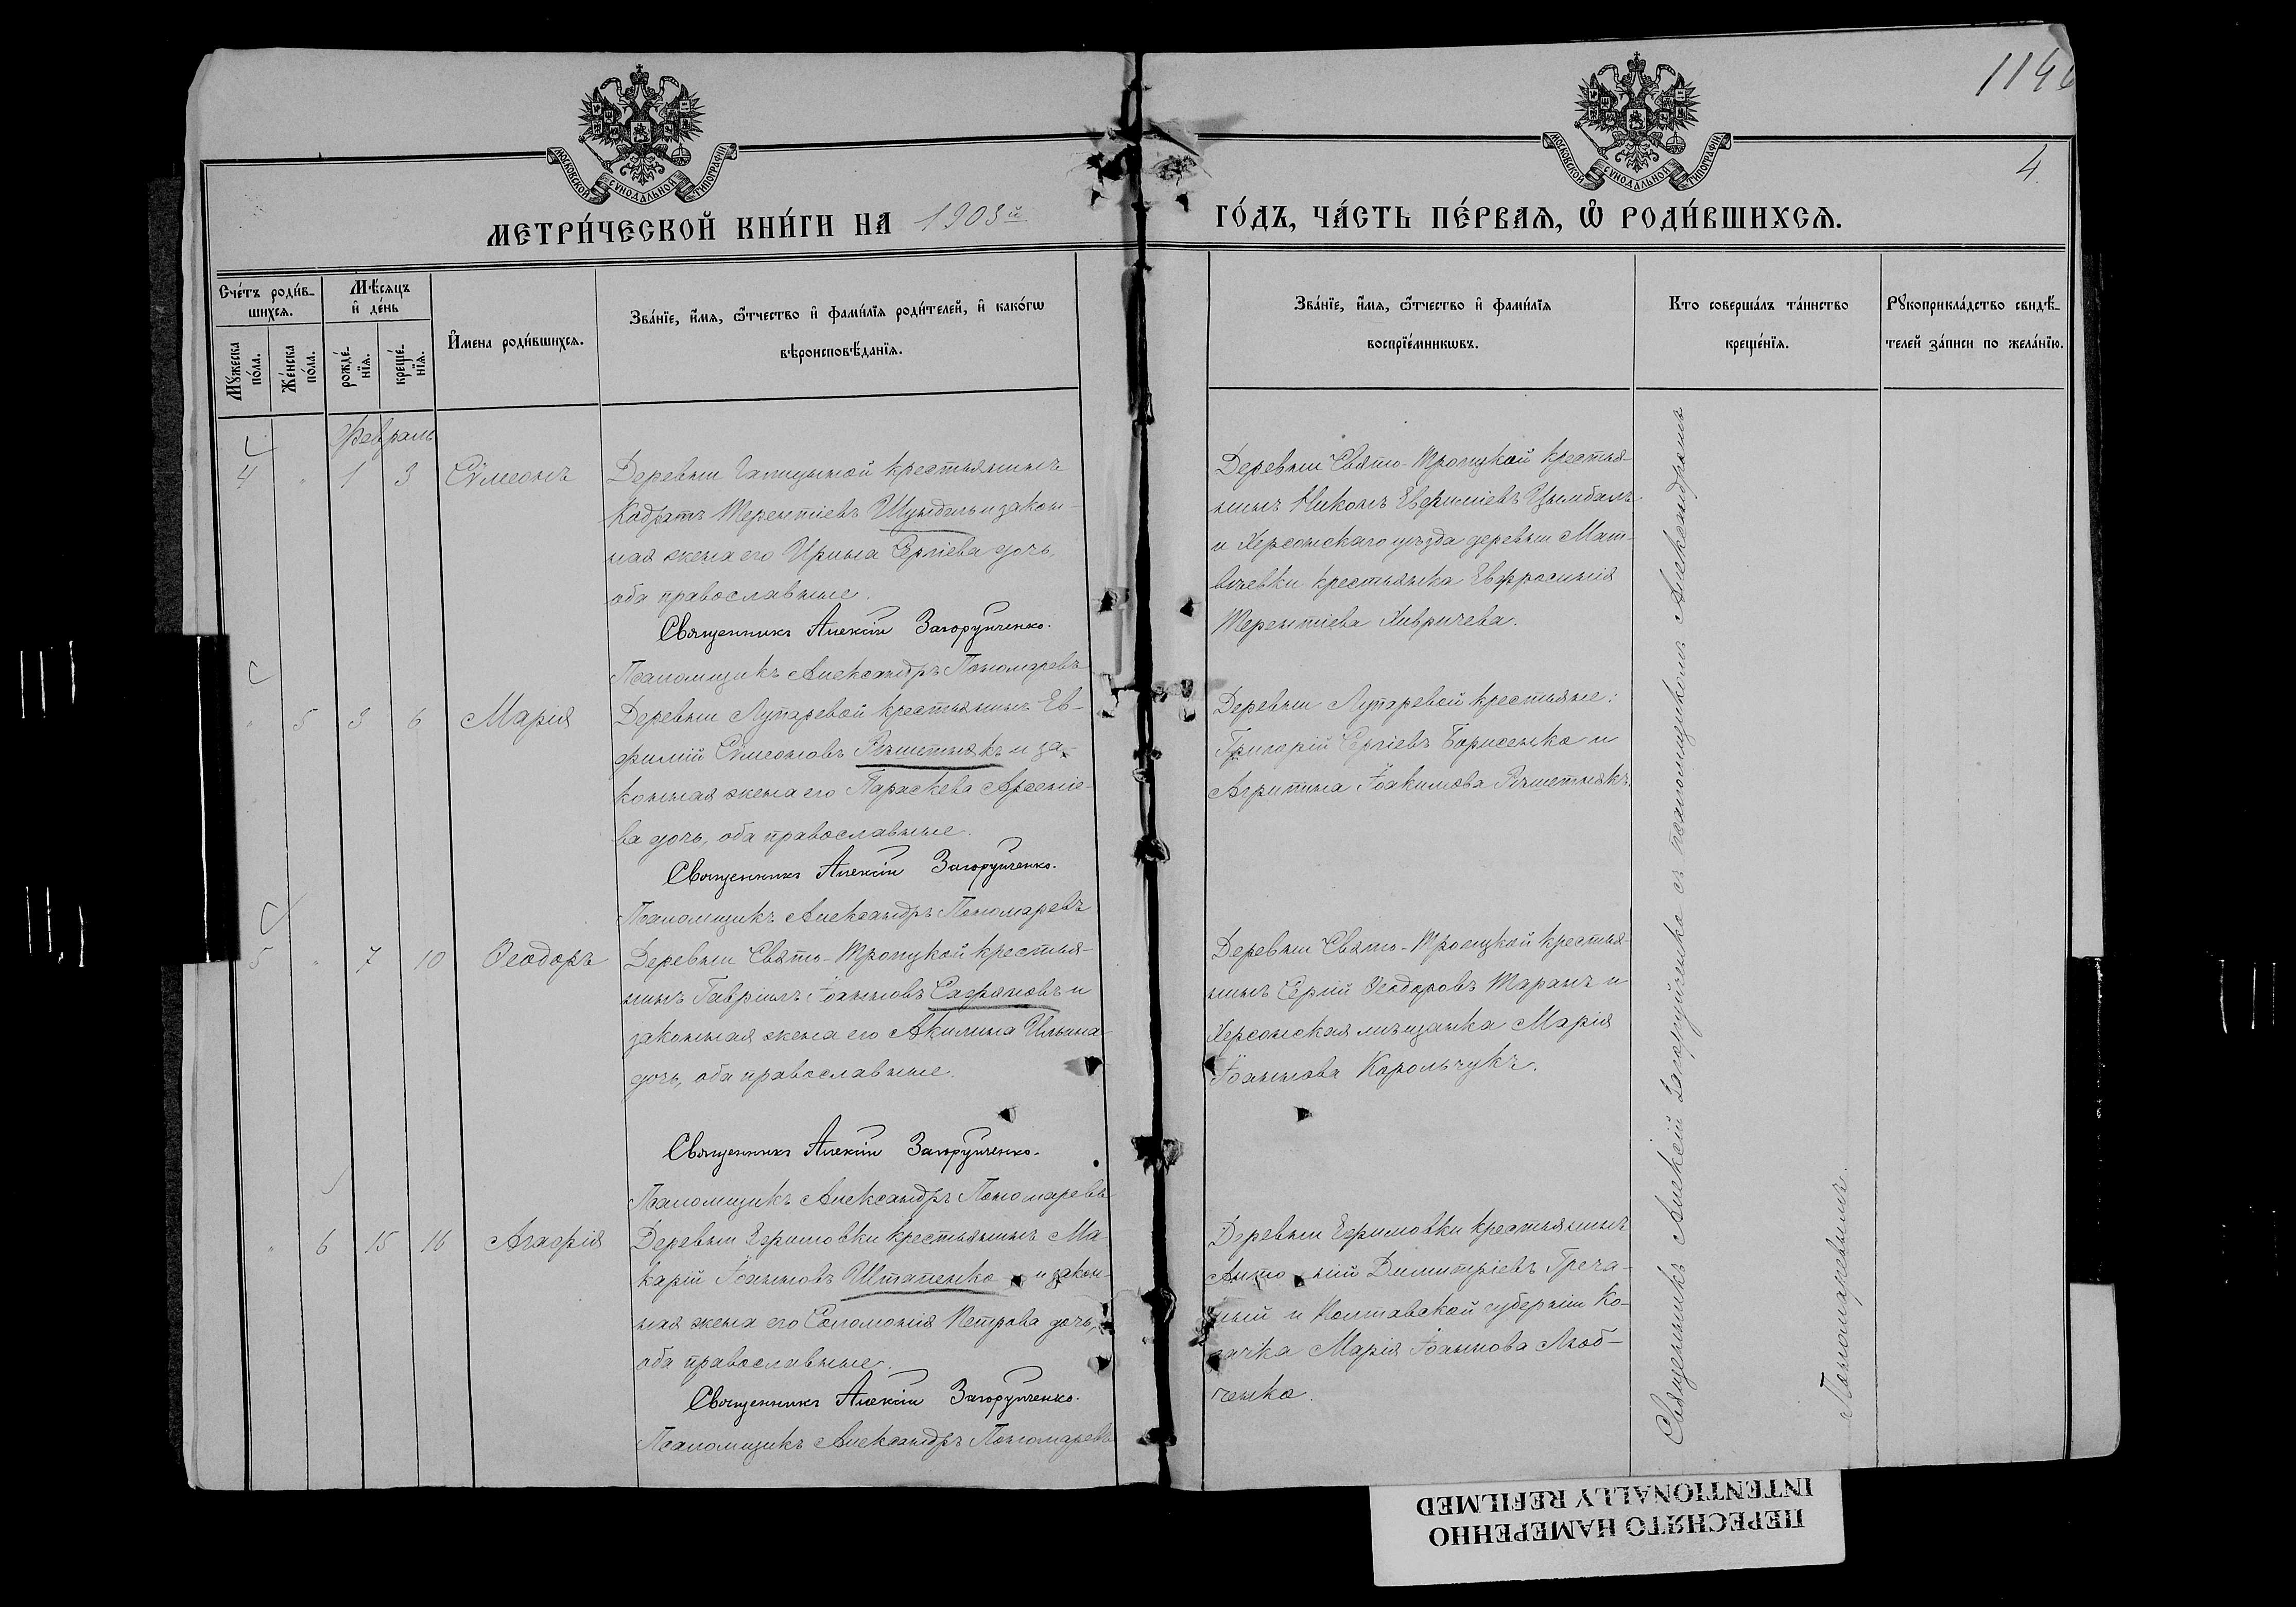 1146
4
МОСКОВСКОЙ СѴНОДАЛЬНОЙ ТИПОГРАФІИ
МОСКОВСКОЙ СѴНОДАЛЬНОЙ ТИПОГРАФІИ
МЕТРИ́ЧЕСКОЙ КНИ́ГИ НА 1903й
ГО́ДЪ, ЧА́СТЬ ПЕ́РВАѦ, Ѡ РОДИ́ВШИХСѦ.
Сче́тъ роди́в-
шихсѧ.
Мѣ́сѧцъ
и де́нь
Мꙋ́жеска
по́ла.
Же́нска
по́ла.
рожде́-
нїѧ.
креще́-
нїѧ.
И́мена роди́вшихсѧ.
Зва́нїе, и́мѧ, ѻ́тчество и фами́лїѧ роди́телей, и како́гѡ
вѣроисповѣ́данїѧ.
Зва́нїе, и́мѧ, ѻ́тчество и фами́лїѧ
воспрїе́мникѡвъ.
Кто соверша́лъ та́инство
креще́нїѧ.
Рꙋкоприкла́дство свидѣ́-
телей за́писи по жела́нїю.
Февраль
4 " 1 3 Сѵмеонъ
Деревни Галицыной крестьянинъ
Кодратъ Терентіевъ Шундель и закон-
ная жена его Ирина Сергіева дочь,
оба православные.
Священникъ Алексій Загоруйченко.
Псаломщикъ Александръ Пономаревъ
Деревни Свято-Троицкой крестья-
нинъ Никонъ Евфиміевъ Цымбалъ
и Херсонскаго уѣзда деревни Мат-
вѣевки крестьянка Евфросинія
Терентіева Хивричева.
" 5 3 6 Марія
Деревни Лупаревой крестьянинъ Ев-
фимій Сѵмеоновъ Рѣшетнякъ и за-
конная жена его Параскева Арсеніе-
ва дочь, оба православные.
Священникъ Алексій Загоруйченко.
Псаломщикъ Александръ Пономаревъ
Деревни Лупаревой крестьяне:
Григорій Сергіевъ Борисенко и
Агрипина Іоакимова Рѣшетнякъ.
5 " 7 10 Ѳеодоръ
Деревни Свято-Троицкой крестья-
нинъ Гавріилъ Іоанновъ Сафяновъ и
законная жена его Акилина Ильина
дочь, оба православные.
Священникъ Алексій Загоруйченко.
Псаломщикъ Александръ Пономаревъ
Деревни Свято-Троицкой крестья-
нинъ Сергій Ѳеодоровъ Таранъ и
Херсонская мѣщанка Марія
Іоаннова Корольчукъ.
" 6 15 16 Агафія
Деревни Ефимовки крестьянинъ Ма-
карій Іоанновъ Штапенко и закон-
ная жена его Соломонія Петрова дочь,
оба православные.
Священникъ Алексій Загоруйченко.
Псаломщикъ Александръ Пономаревъ
Деревни Ефимовки крестьянинъ
Антоній Димитріевъ Греча-
ный и Полтавской губерніи Ко-
зачка Марія Іоаннова Люб-
ченко.
Священникъ Алексій Загоруйченко съ псаломщикомъ Александромъ
Пономаревымъ.
ПЕРЕСНЯТО НАМЕРЕННО
INTENTIONALLY REFILMED